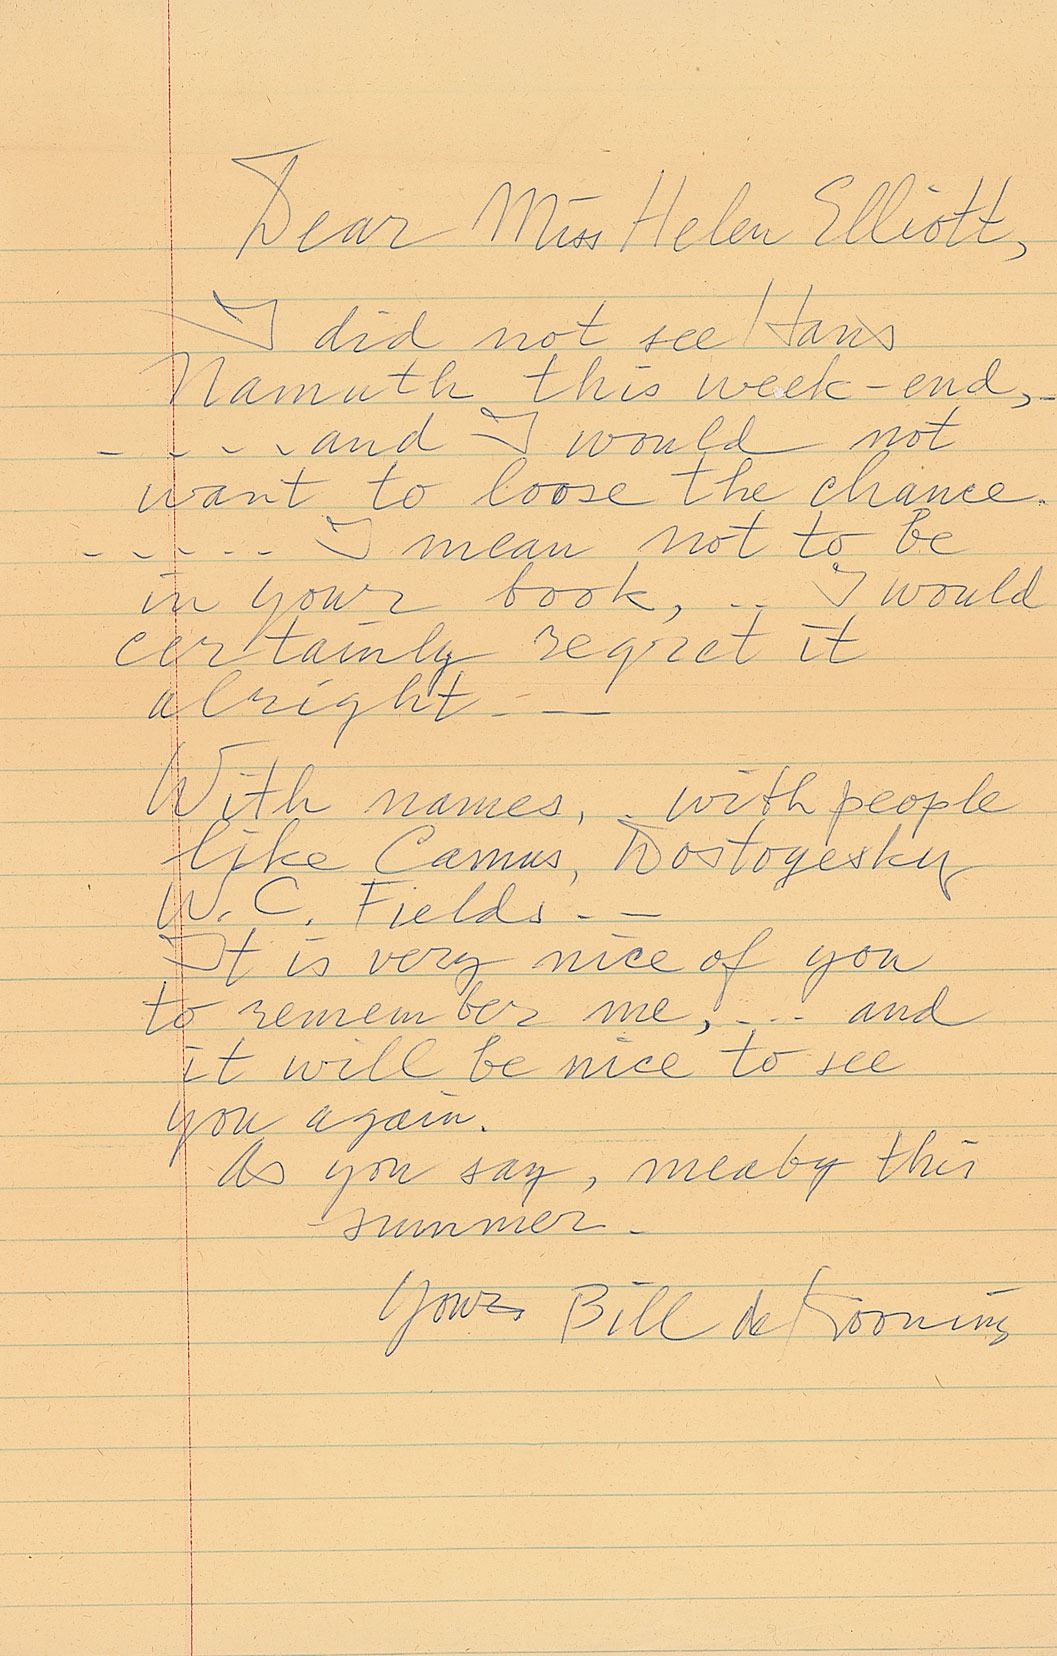 Dear Miss Helen Elliott,
I did not see Hans
Namuth this week-end,-
- - - - and I would not
want to loose the chance.
- - - - - I mean not to be
in your book, -- I would
certainly regret it
alright - —
With names, . with people
like Camus, Dostoyesky
W. C. Fields - —
It is very nice of you
to remember me, - -- and
it will be nice to see
you again.
As you say, meaby this
summer -
Yours Bill de Kooning